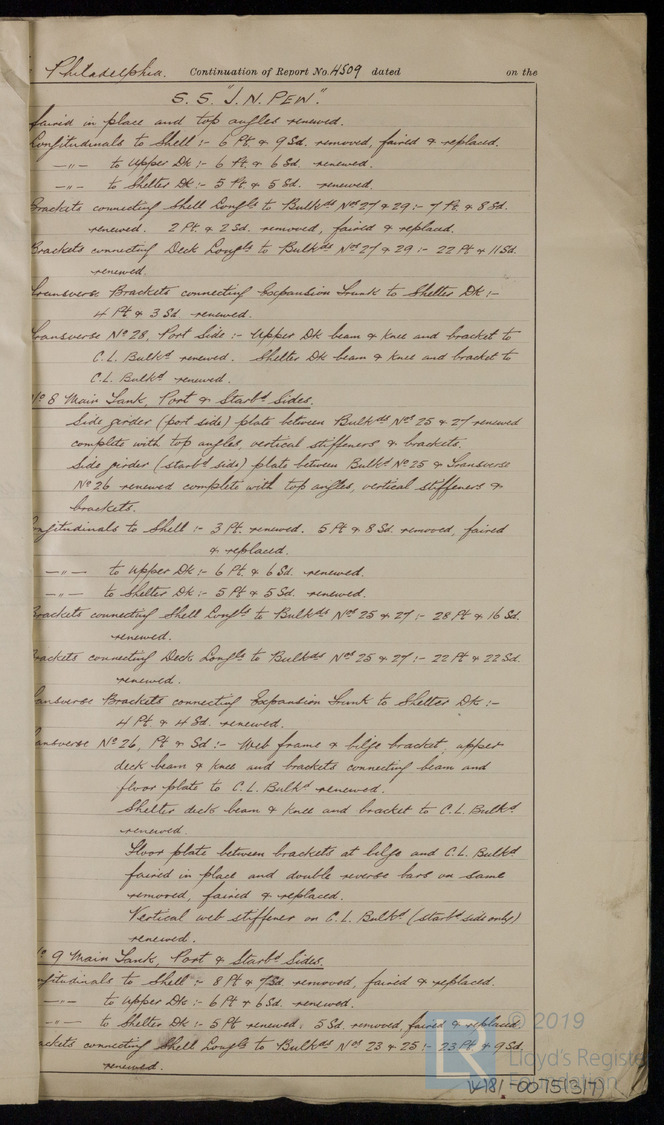 Philadelphia. Continuation of Report No. 4509 dated on the
S.S. "J.N. PEW".
faired in place and top angles renewed.
Longitudinals to Shell :- 6 Pt. & 9 Sd. removed, faired & replaced.
—〃— to Upper Dk :- 6 Pt. & 6 Sd. renewed.
—〃— to Shelter Dk :- 5 Pt. & 5 Sd. renewed.
Brackets connecting Shell Longls to Bulkds Nos 27 & 29 :- 7 Pt. & 8 Sd.
renewed. 2 Pt & 2 Sd. removed, faired & replaced.
Brackets connecting Deck Longls to Bulkds Nos 27 & 29 :- 22 Pt & 11 Sd.
renewed.
Transverse Brackets connecting Expansion Trunk to Shelter Dk :-
4 Pt & 3 Sd renewed.
Transverse No 28, Port Side :- Upper Dk beam & knee and bracket to
C.L. Bulkd renewed. Shelter Dk beam & knee and bracket to
C.L. Bulkd renewed.
No 8 Main Tank, Port & Starbd Sides.
Side girder (port side) plate between Bulkds Nos 25 & 27 renewed
complete with top angles, vertical stiffeners & brackets.
Side girder (starbd side) plate between Bulkd No 25 & Transverse
No 26 renewed complete with top angles, vertical stiffeners &
brackets.
ongitudinals to Shell :- 3 Pt. renewed. 5 Pt & 8 Sd. removed, faired
& replaced.
—〃— to Upper Dk :- 6 Pt. & 6 Sd. renewed.
—〃— to Shelter Dk :- 5 Pt & 5 Sd. renewed.
Brackets connecting Shell Longls to Bulkds Nos 25 & 27 :- 28 Pt & 16 Sd.
renewed.
rackets connecting Deck Longls to Bulkds Nos 25 & 27 :- 22 Pt & 22 Sd.
renewed.
ansverse Brackets connecting Expansion Trunk to Shelter Dk :-
4 Pt. & 4 Sd. renewed.
ansverse No 26, Pt & Sd :- Web frame & bilge bracket, upper
deck beam & knee and brackets connecting beam and
floor plate to C.L. Bulkd renewed.
Shelter deck beam & knee and bracket to C.L. Bulkd
renewed.
Floor plate between brackets at bilge and C.L. Bulkd
faired in place and double reverse bars on same
removed, faired & replaced.
Vertical web stiffener on C.L. Bulkd (starbd side only)
renewed.
o 9 Main Tank, Port & Starbd Sides.
ngitudinals to Shell :- 8 Pt & 7 Sd. removed, faired & replaced.
—〃— to Upper Dk :- 6 Pt & 6 Sd. renewed.
—〃— to Shelter Dk :- 5 Pt renewed. 5 Sd. removed, faired & replaced.
ackets connecting Shell Longls to Bulkds Nos 23 & 25 :- 23 Pt & 9 Sd.
renewed.
© 2019
Lloyd's Register
Foundation
W181-0075(3/7)